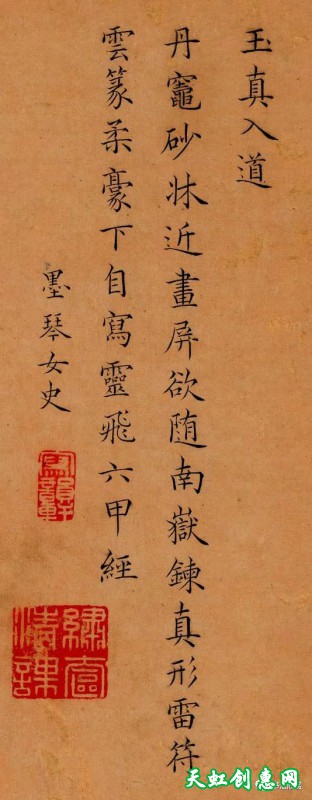 玉真入道
丹竈砂牀近畫屏欲随南嶽鍊真形雷符
雲篆柔豪下自寫靈飛六甲經
墨琴女史
天虹创惠网